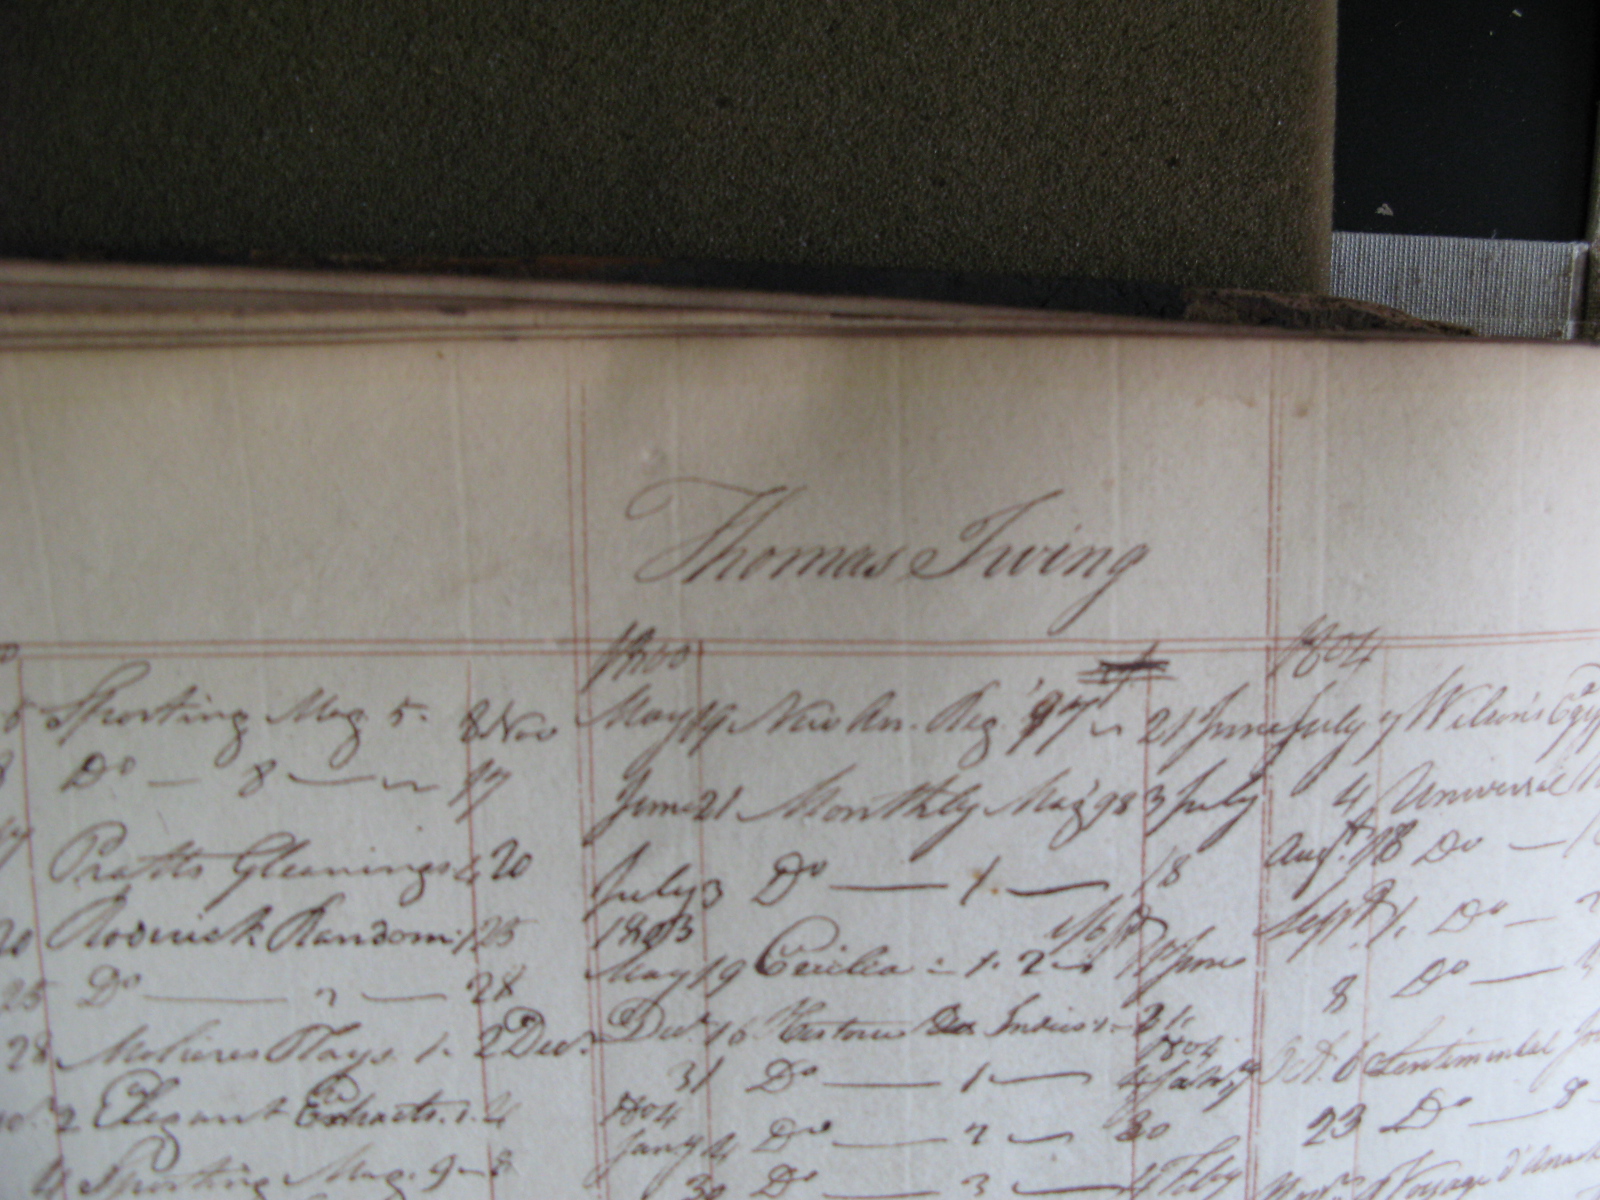 Thomas Irving
5 Sporting Mag. 5. 8 Nov
8 Do — 8 — 17
17 Pratts Gleanings 20
20 Roderick Random. 1 25
25 Do — 2 — 28
28 Molieres Plays. 1. 2 Decr.
2 Elegant Extracts. 1. 4
4 Sporting Mag. 9 – 8
1800
May 19 New An. Reg. 97 21 June
June 21 Monthly Mag. 98 3 July
July 3 Do — 1. — 18
1803
May 19 Cecilia : 1. 2 June
Decr. 16 Histoire des Indies 1 – 31.
1804
31 Do — 1 — 4 Jany
1804
Jany 4 Do — 2 — 30
30 Do — 3 — 4 Feby
1804
July Wilson's
4 Universal
Augt. 28 Do —
Sept. 1. Do —
8 Do —
Oct. 6 Sentimental
23 Do — 8
Voyage d'Anach